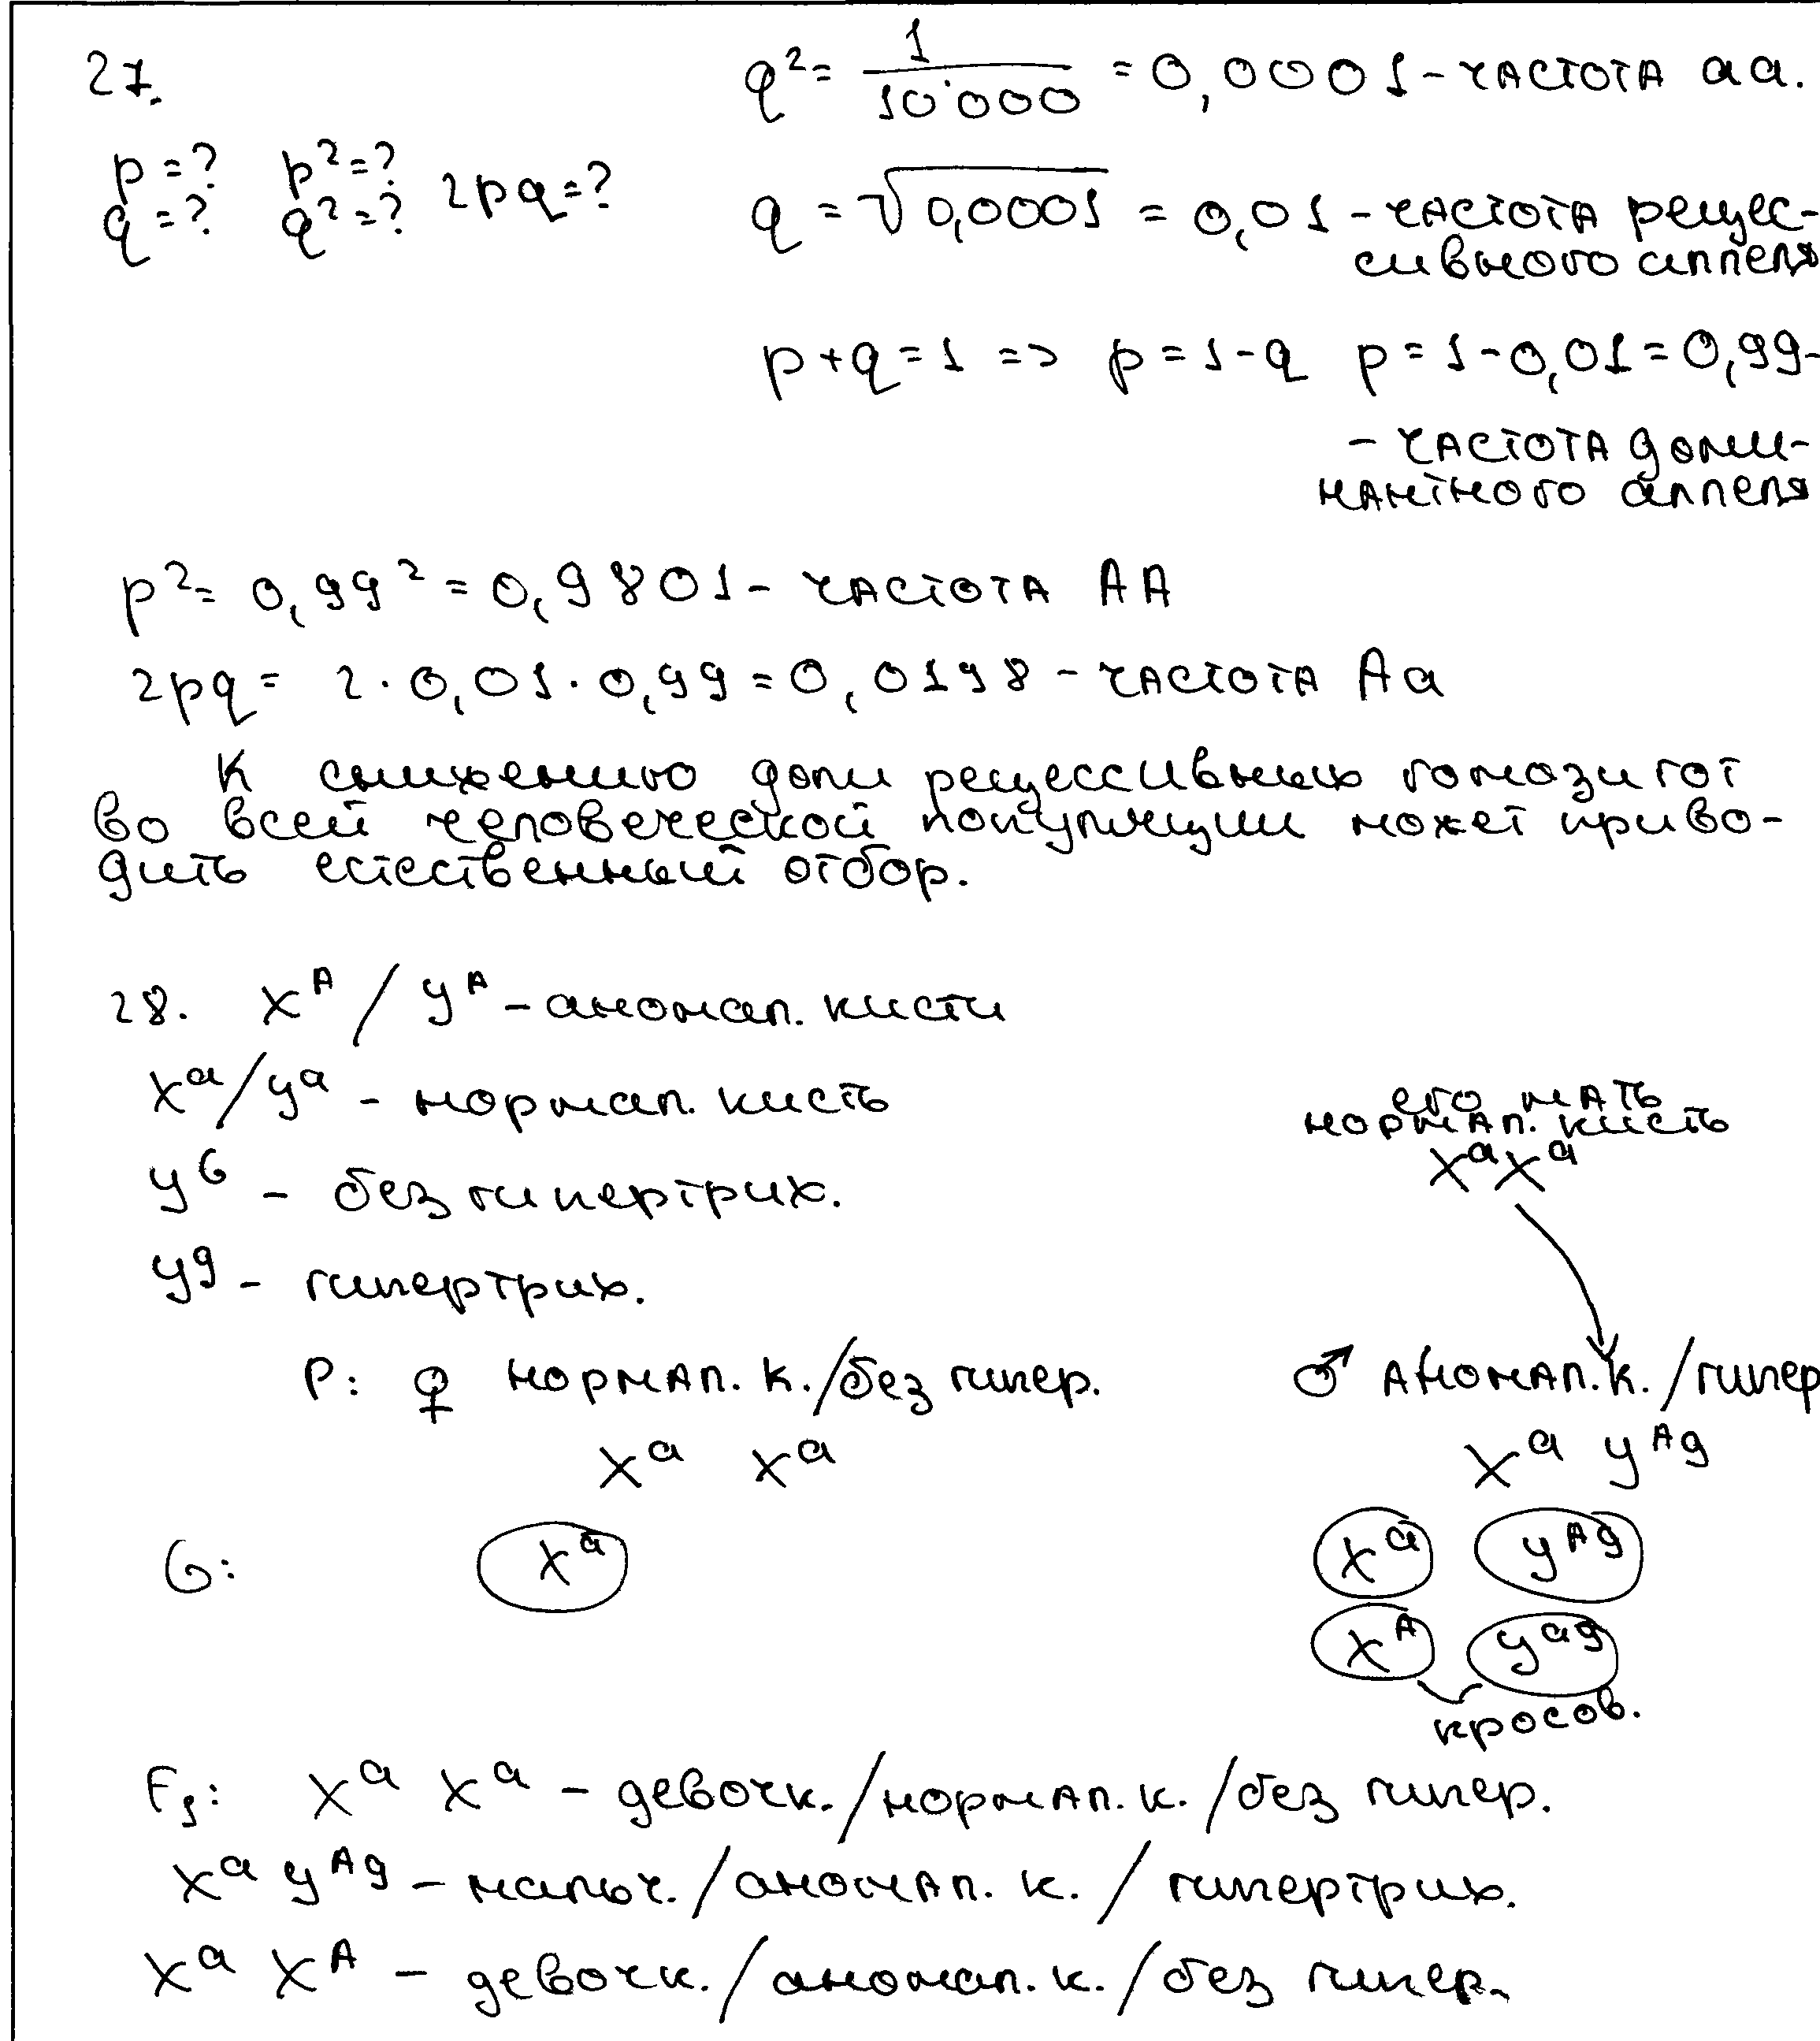 27.
q² = 1/10'000 = 0,0001 - частота аа.
p = ? p² = ? 2pq = ?
q = ? q² = ?
q = √0,0001 = 0,01 - частота рецес-
сивного аллеля
p + q = 1 => p = 1 - q p = 1 - 0,01 = 0,99 -
- частота доми-
нантного аллеля
p² = 0,99² = 0,9801 - частота АА
2pq = 2 · 0,01 · 0,99 = 0,0198 - частота Аа
К снижению доли рецессивных гомозигот
во всей человеческой популяции может приво-
дить естественный отбор.
28. X^A / Y^A - аномал. кисти
X^a / Y^a - нормал. кисть
его мать
нормал. кисть
Y^G - без гипертрих.
X^a X^a
Y^g - гипертрих.
P: ♀ нормал. к. / без гипер. ♂ аномал. к. / гипер
X^a X^a X^a Y^Ag
G: X^a X^a Y^Ag
X^A Y^ag
кросов.
F₁: X^a X^a - девочк. / нормал. к. / без гипер.
X^a Y^Ag - мальч. / аномал. к. / гипертрих.
X^a X^A - девочк. / аномал. к. / без гипер.